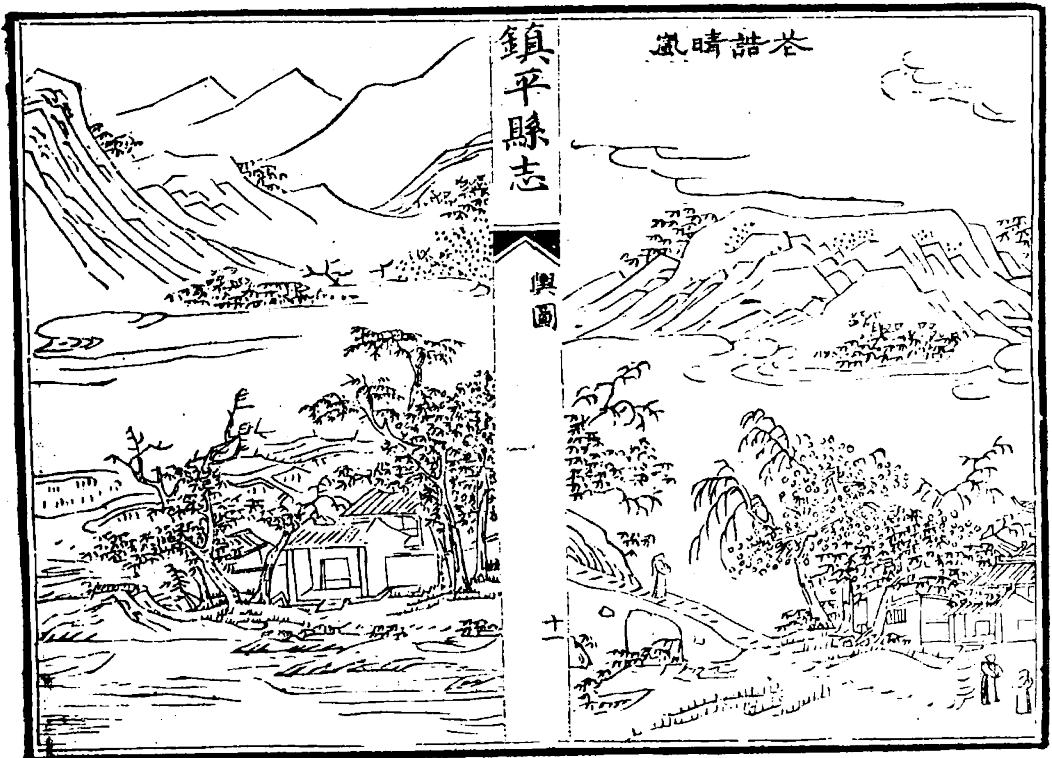 誥晴嵐
鎮平縣志
輿圖
一
十一